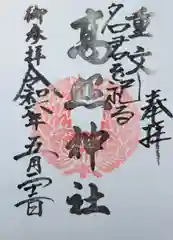 奉拝
重文
名君を祀る
高照神社
御参拝 令和 年五月 日